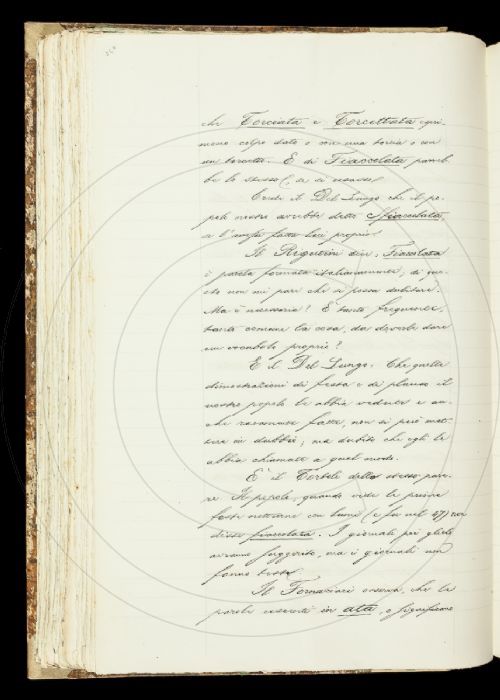 che Torciata e Torcettata espri-
mono colpo dato o con una torcia o con
un torcetto. E di Fiaccolata pareb-
be lo stesso, se si usasse.
Crede il Del Lungo che il po-
polo nostro avrebbe detto Sfiaccolata,
se l'avesse fatta luci proprie.
Il Rigutini dice: Fiaccolata
è parola formata italianamente, di que-
sto non mi pare che si possa dubitare.
Ma è necessaria? È tanto frequente,
tanto comune la cosa, da doverle dare
un vocabolo proprio?
E il Del Lungo: Che quelle
dimostrazioni di festa e di plauso il
nostro popolo le abbia vedute e an-
che raramente fatte, non si può met-
tere in dubbio; ma dubito che egli le
abbia chiamate a quel modo.
E il Tortoli dello stesso pare-
re. Il popolo, quando vide le prime
feste notturne con lumi (e fu nel 47) non
disse fiaccolata. I giornali poi glielo
avranno suggerito, ma i giornali non
fanno testo.
Il Fornaciari osserva, che le
parole uscenti in ata, o significano